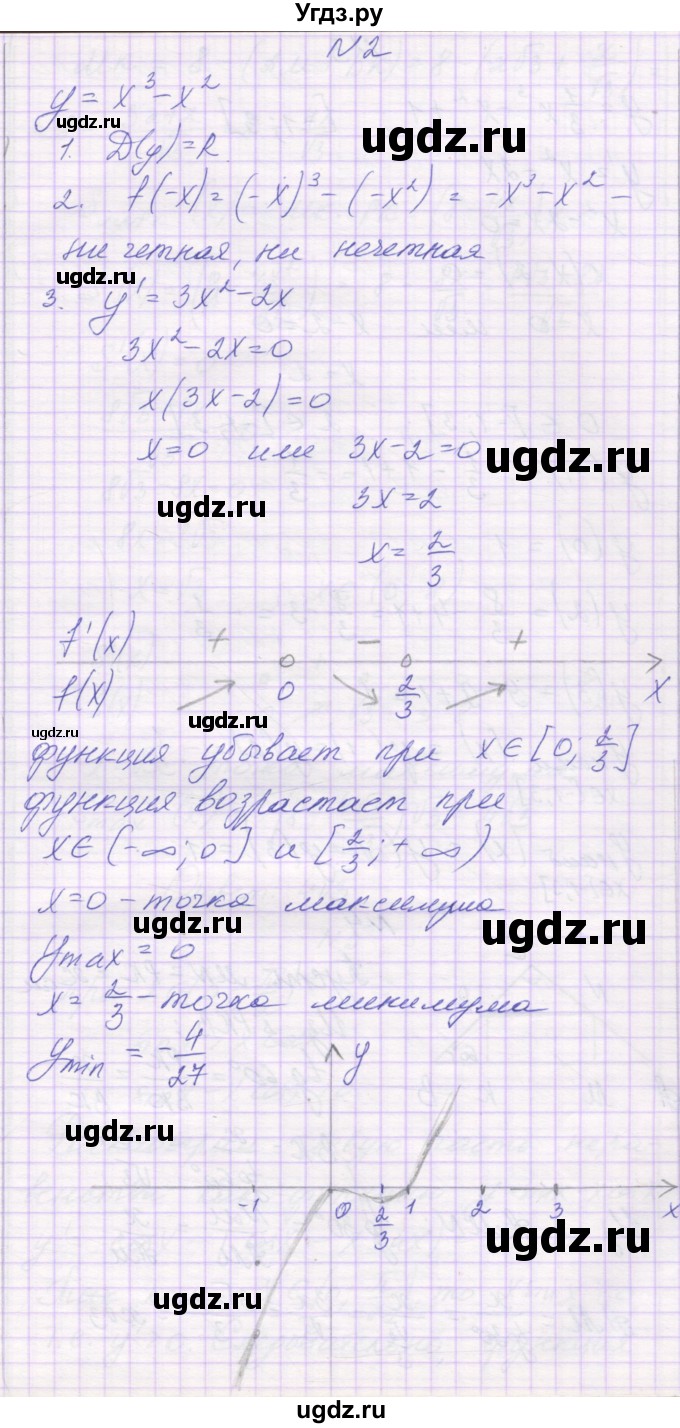 Угдз.ру
N2
y = x³ - x²
ugdz.ru
ugdz.ru
1. D(y) = R
2. f(-x) = (-x)³ - (-x²) = -x³ - x² -
ни четная, ни нечетная
ugdz.ru
3. y' = 3x² - 2x
3x² - 2x = 0
x(3x - 2) = 0
x = 0 или 3x - 2 = 0
ugdz.ru
ugdz.ru
3x = 2
x = 2/3
f'(x) + - +
f(x) 0 2/3 x
ugdz.ru
ugdz.ru
функция убывает при x ∈ [0; 2/3]
функция возрастает при
x ∈ (-∞; 0] и [2/3; +∞)
x = 0 - точка максимума
ugdz.ru
ugdz.ru
ymax = 0
x = 2/3 - точка минимума
ymin = -4/27
y
ugdz.ru
-1 0 2/3 1 2 3 x
ugdz.ru
ugdz.ru
ugdz.ru